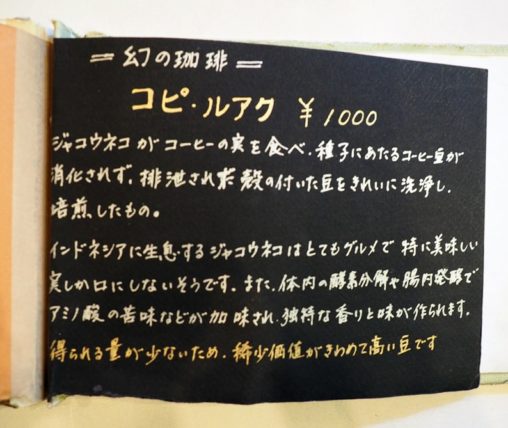 =幻の珈琲=
コピ・ルアク ¥1000
ジャコウネコがコーヒーの実を食べ、種子にあたるコーヒー豆が
消化されず、排泄された殻の付いた豆をきれいに洗浄し、
焙煎したもの。
インドネシアに生息するジャコウネコはとてもグルメで特に美味しい
実しか口にしないそうです。また、体内の酵素分解や腸内発酵で
アミノ酸の苦味などが加味され、独特な香りと味が作られます。
得られる量が少ないため、稀少価値がきわめて高い豆です